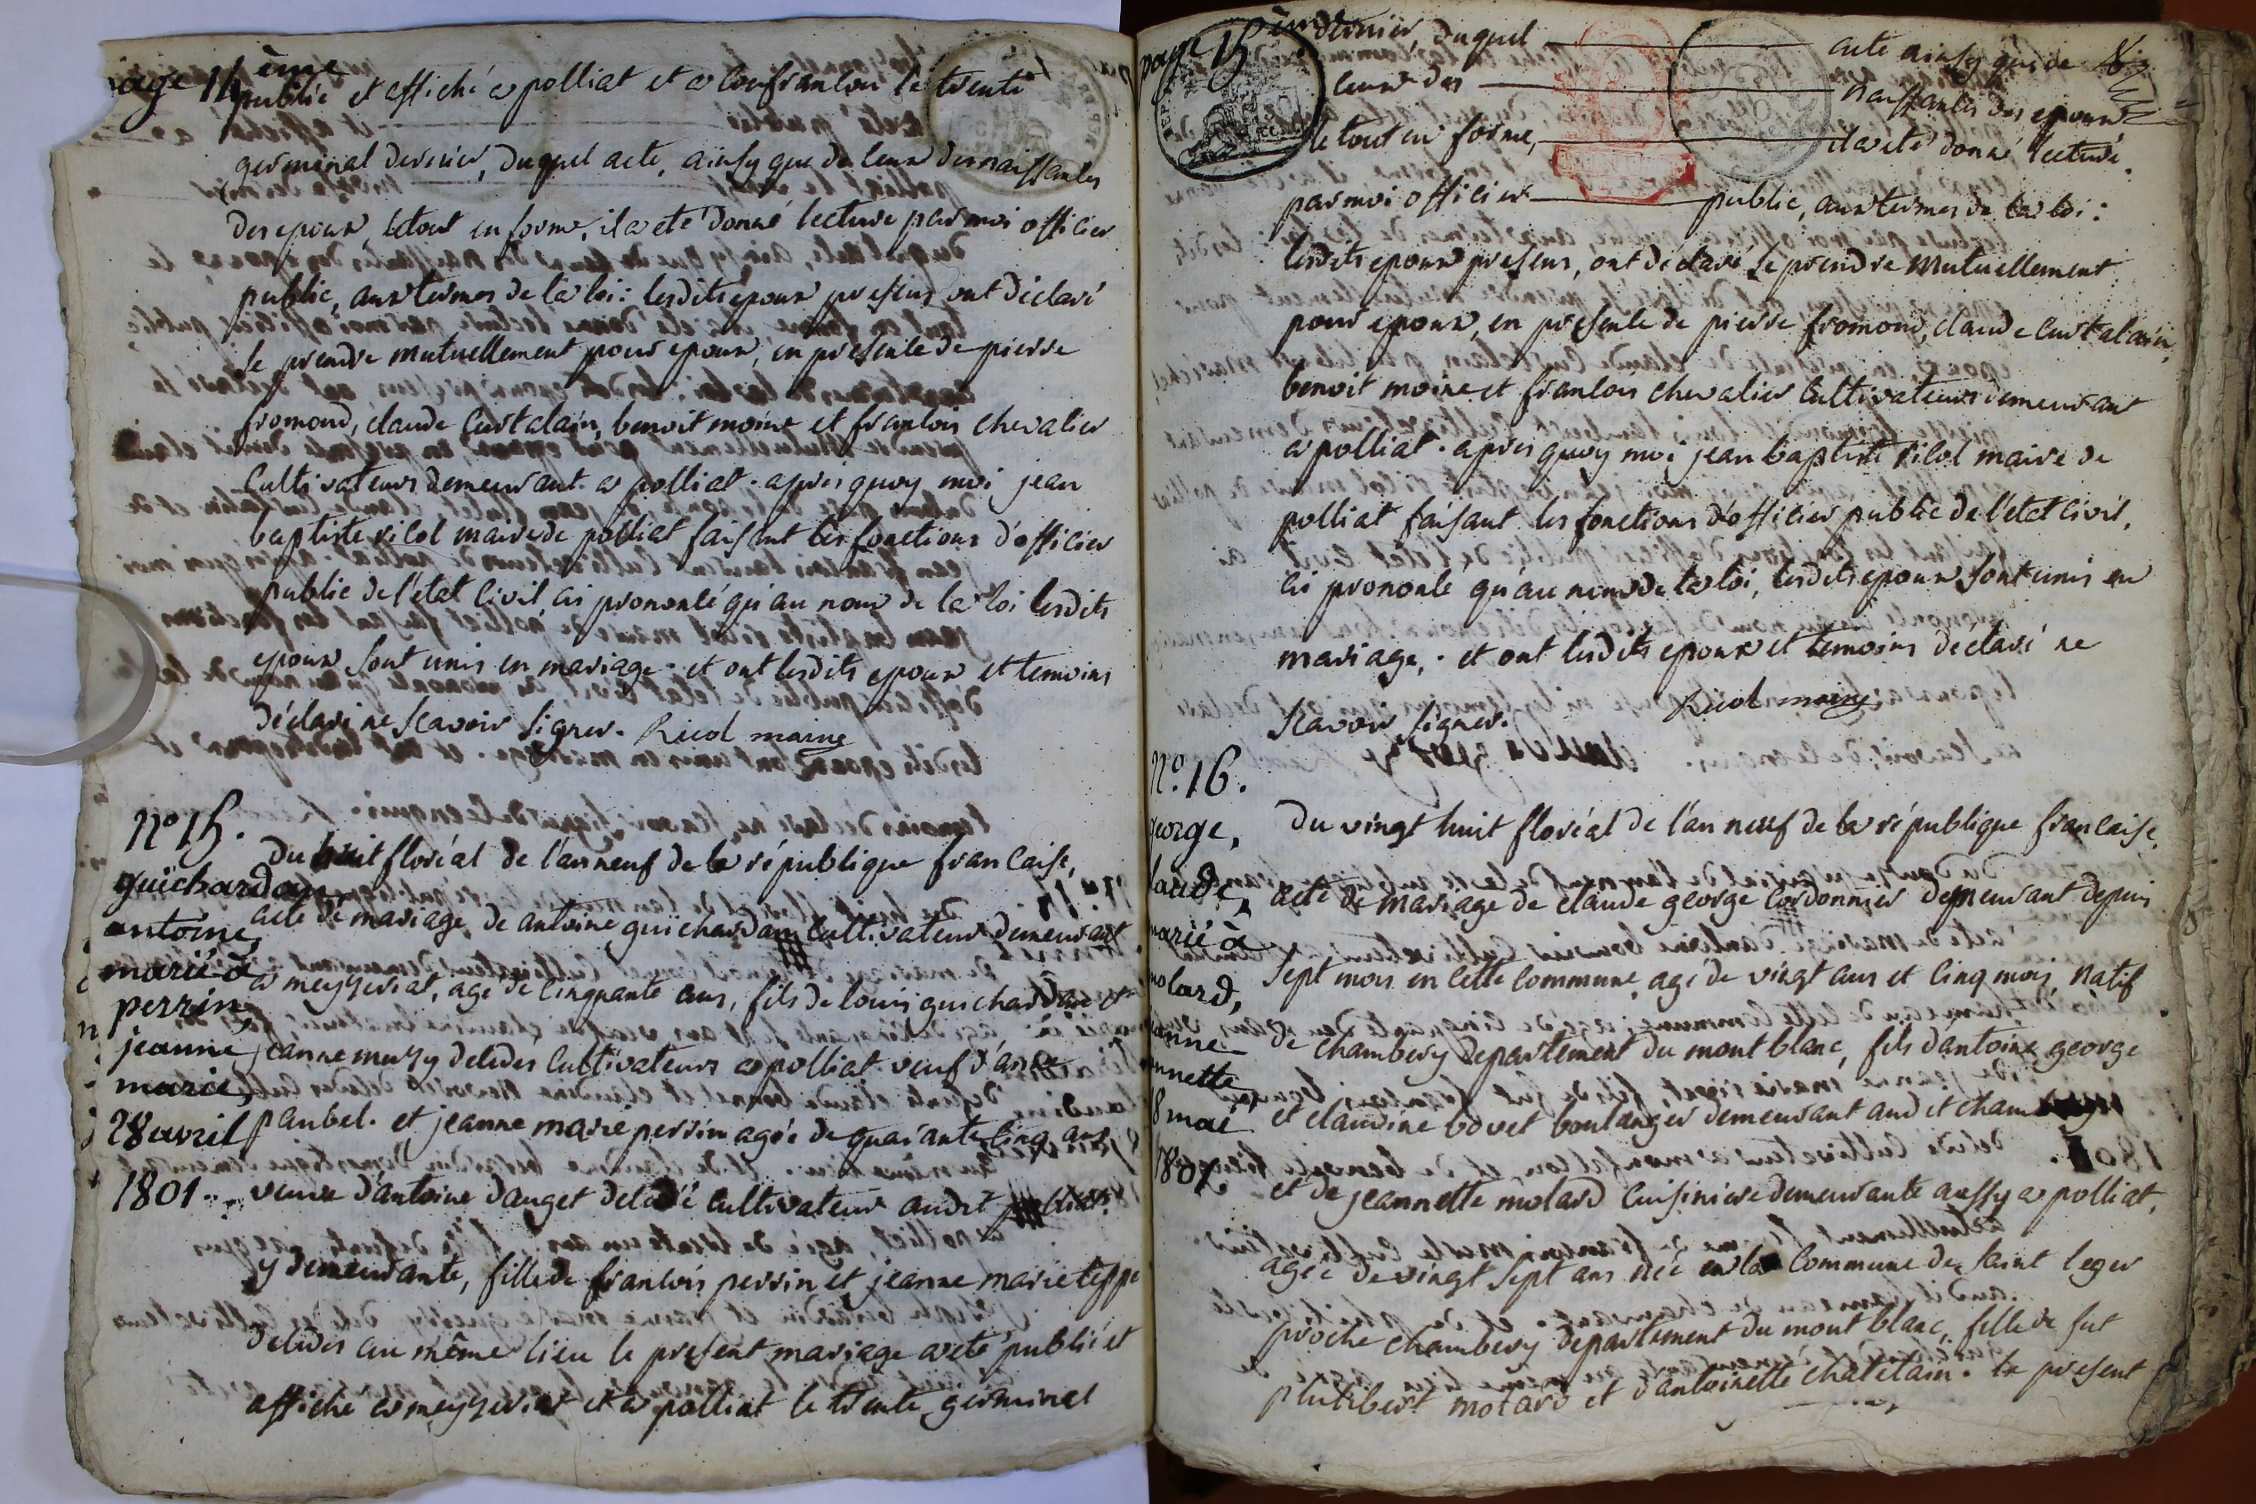 page 14ème
publié et affiché a polliat et a Confrancon le trente
germinal dernier, duquel acte, ainsy que de leux des naissances
des epoux, letout en forme, il a eté donné lecture par moi officier
public, aux termes de la loi : lesdits epoux presens ont déclaré
se prendre mutuellement pour epoux, en presence de pierre
fromond, claude Curtalain, benoit moine et francois chevalier
Cultivateurs demeurant a polliat. apres quoy moi jean
baptiste ricol maire de polliat faisant les fonctions d'officier
public de l'etat Civil, ai prononcé qu'au nom de la loi lesdits
epoux sont unis en mariage. et ont lesdits epoux et temoins
déclaré ne scavoir signer. Ricol maire
No 15.
guichardan
antoine,
marié à
perrin
jeanne
marie,
28 avril
1801.
Du huit floréal de l'an neuf de la république francaise,
acte de mariage de antoine guichardan Cultivateur demeurant
a mezeriat, agé de Cinquante ans, fils de louis guichardan et
jeanne mury delédes Cultivateurs a polliat veuf d'anne
paubel. et jeanne marie perrin agée de quarante Cinq ans
veuve d'antoine dauget delédé Cultivateur audit polliat
y demeurante, fille de francois perrin et jeanne marie teppe
delédes au même lieu le present mariage a eté publié et
affiché a mezeriat et a polliat le trente germinal
page 15ème
dernier, duquel acte ainsy que de
leux des naissances des epoux
le tout en forme, il a eté donné lecture
par moi officier public, aux termes de la loi :
lesdits epoux presens, ont déclaré se prendre mutuellement
pour epoux, en presence de pierre fromond, claude Curtalain,
benoit moine et francois chevalier Cultivateurs demeurant
a polliat. apres quoy moi jean baptiste ricol maire de
polliat faisant les fonctions d'officier public de l'etat Civil,
ai prononcé qu'au nom de la loi, lesdits epoux sont unis en
mariage, . et ont lesdits epoux et temoins déclaré ne
scavoir signer. Ricol maire
No. 16.
george,
laude,
marié à
molard,
anne
nnette
8 mai
1801.
Du vingt huit floréal de l'an neuf de la république francaise,
acte de mariage de claude george Cordonnier demeurant depuis
sept mois en cette Commune, agé de vingt ans et Cinq mois, natif
de chambery département du mont blanc, fils d'antoine george
et claudine bovet boulanger demeurant audit chambery
et de jeannette molard Cuisiniere demeurante aussy a polliat,
agée de vingt sept ans née en la Commune de saint leger
proche chambery departement du mont blanc, fille de fut
philibert molard et d'antoinette chatelain. le present